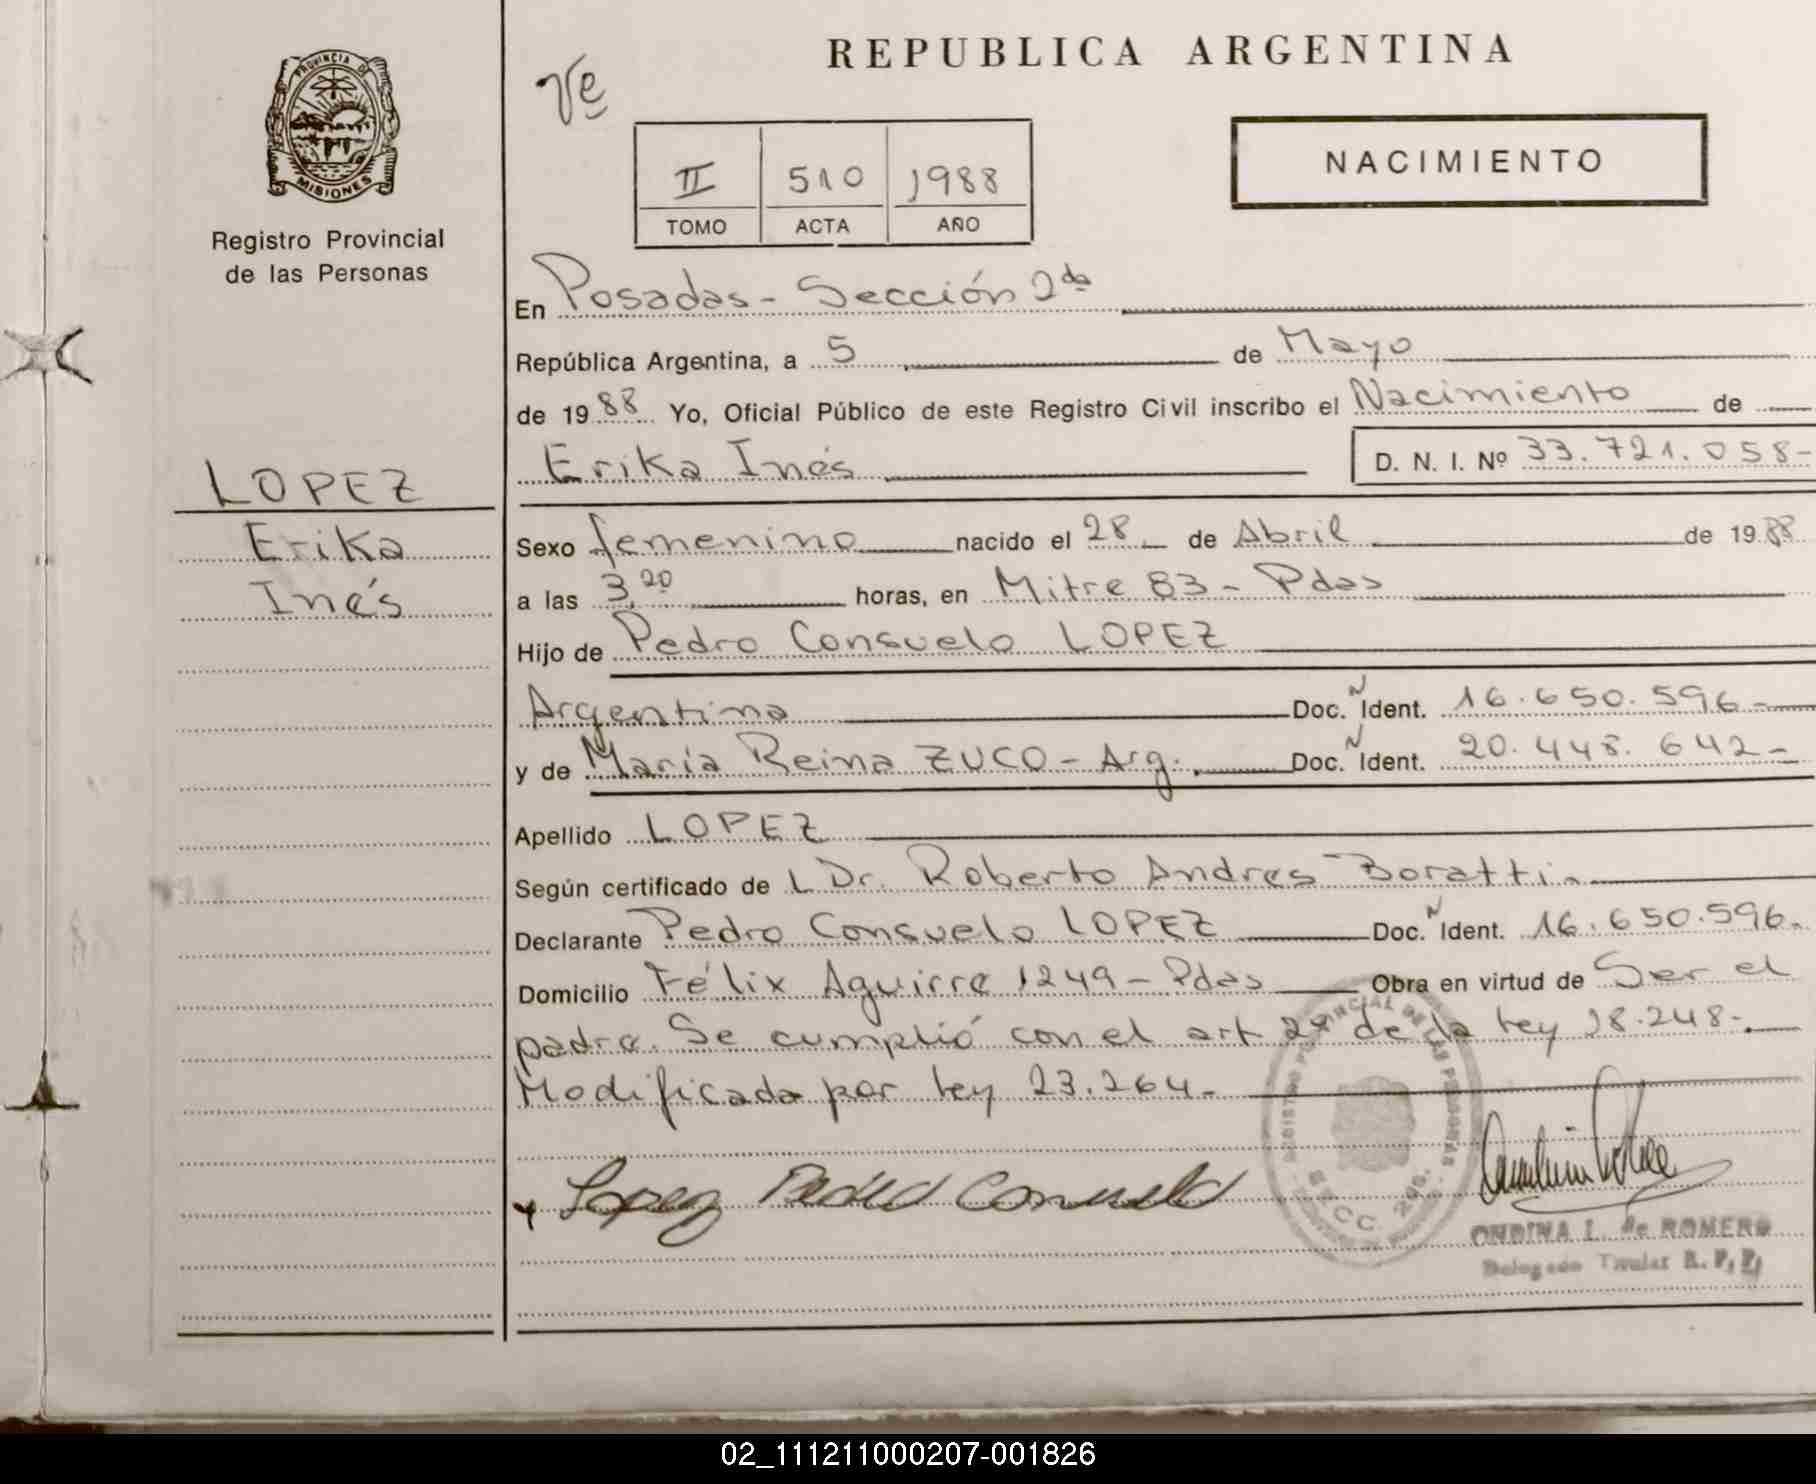 PROVINCIA DE
MISIONES
Registro Provincial
de las Personas
LOPEZ
Erika
Inés
REPUBLICA ARGENTINA
NACIMIENTO
II 510 1988
TOMO ACTA AÑO
En Posadas - Sección 2da
República Argentina, a 5 de Mayo
de 1988 Yo, Oficial Público de este Registro Civil inscribo el Nacimiento de
Erika Inés D. N. I. Nº 33.721.058-
Sexo femenino nacido el 28 de Abril de 1988
a las 3,20 horas, en Mitre 83 - Pdas
Hijo de Pedro Consuelo LOPEZ
Argentino Doc. Ñ Ident. 16.650.596-
y de María Reina ZUCO - Arg. Doc. Ñ Ident. 20.448.642-
Apellido LOPEZ
Según certificado de L Dr. Roberto Andres Boratti.
Declarante Pedro Consuelo LOPEZ Doc. Ñ Ident. 16.650.596.
Domicilio Félix Aguirre 1249 - Pdas Obra en virtud de Ser el
padre. Se cumplió con el art 2º de la ley 18.248-.
Modificada por ley 23.264-
Lopez Pedro Consuelo
SECC. 2da.
ONDINA I. de ROMERO
Delegado Titular R. P. P.
02_111211000207-001826